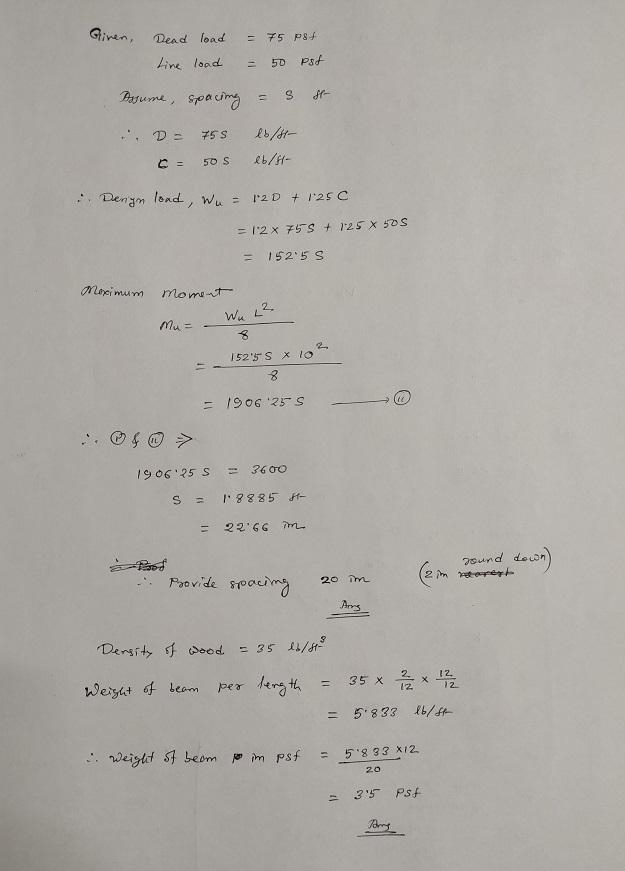 Given, Dead load = 75 psf
Live load = 50 psf
Assume, spacing = S ft
∴ D = 75S lb/ft
C = 50S lb/ft
∴ Design load, Wu = 1.2D + 1.25C
= 1.2 × 75S + 1.25 × 50S
= 152.5 S
Maximum moment
Mu = Wu L² / 8
= 152.5S × 10² / 8
= 1906.25 S → (ii)
∴ (i) & (ii) ⇒
1906.25 S = 3600
S = 1.8885 ft
= 22.66 in
∴ Provide spacing 20 in (2 in round down)
Ans
Density of wood = 35 lb/ft³
Weight of beam per length = 35 × 2/12 × 12/12
= 5.833 lb/ft
∴ weight of beam in psf = 5.833 × 12 / 20
= 3.5 psf
Ans